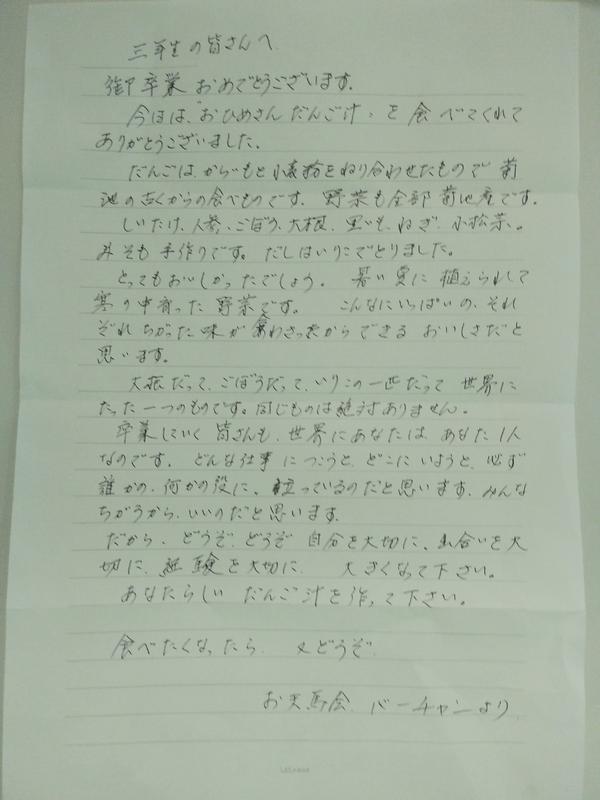 三年生の皆さんへ
御卒業おめでとうございます。
今日は、"おひめさんだんご汁"を食べてくれて
ありがとうございました。
だんごは、からいもと小麦粉をねり合わせたもので菊
池の古くからの食べものです。野菜も全部菊池産です。
しいたけ、人参、ごぼう、大根、里いも、ねぎ、小松菜。
みそも手作りです。だしはいりこでとりました。
とってもおいしかったでしょう。暑い夏に植えられて
寒の中育った野菜です。こんなにいっぱいの、それ
ぞれちがった味があわさったからできるおいしさだと
思います。
大根だって、ごぼうだって、いりこの一匹だって世界に
たった一つのものです。同じものは絶対ありません。
卒業していく皆さんも、世界にあなたはあなた1人
なのです。どんな仕事につこうと、どこにいようと、必ず
誰かの、何かの役に、立っているのだと思います。みんな
ちがうから、いいのだと思います。
だから、どうぞ、どうぞ自分を大切に、出合いを大
切に、経験を大切に、大きくなって下さい。
あなたらしいだんご汁を作って下さい。
食べたくなったら、又どうぞ。
お天馬会 バーチャンより